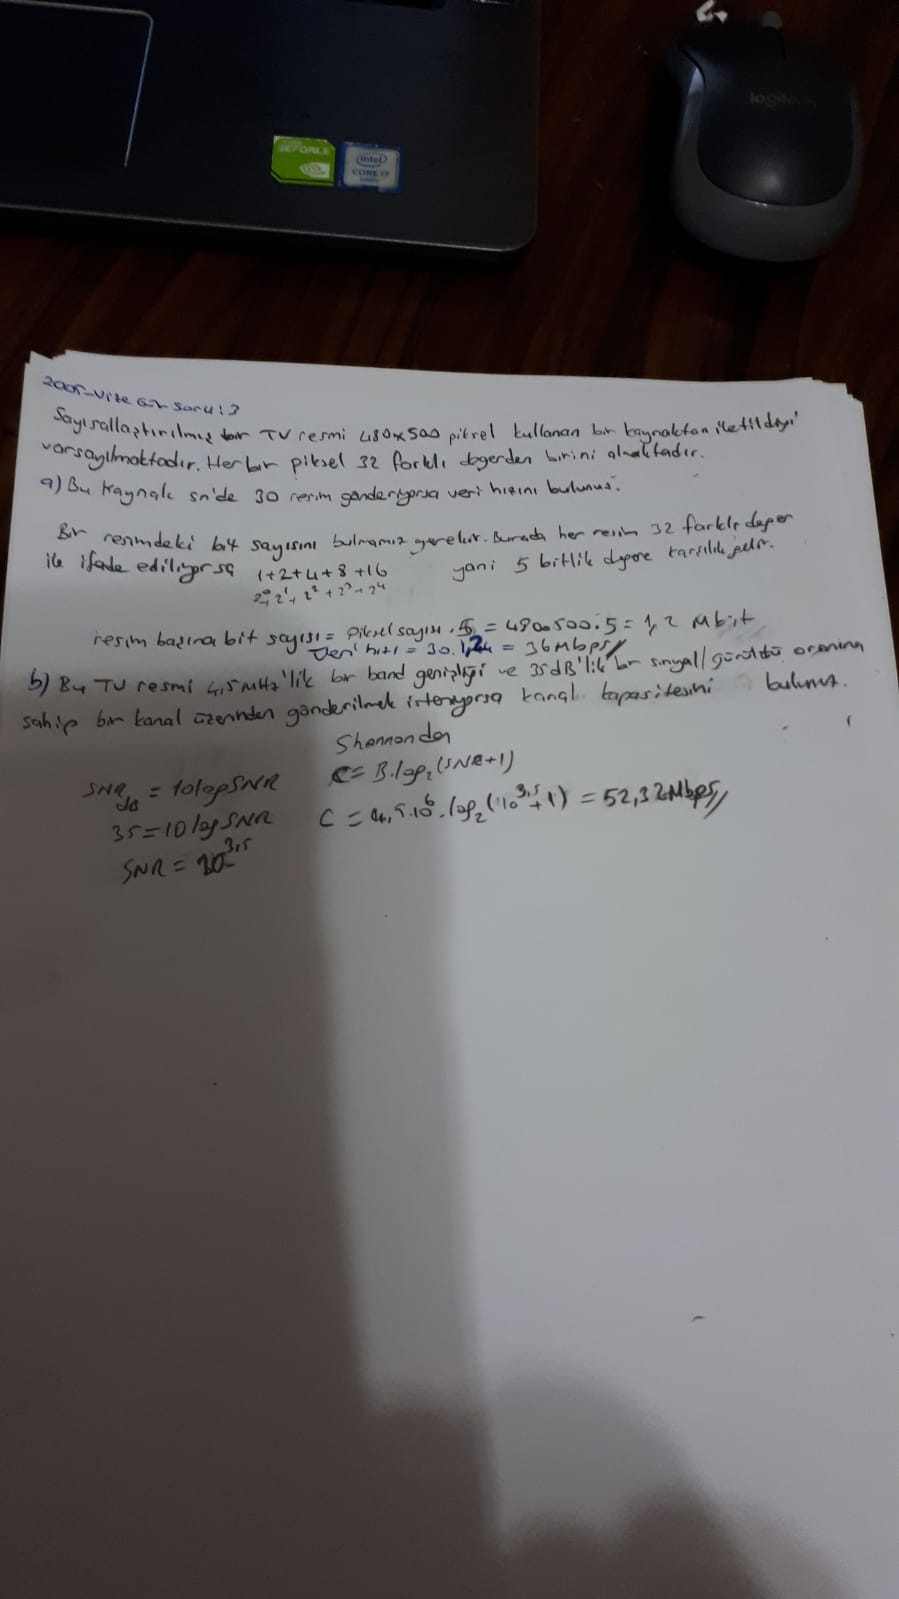 logitech
GEFORCE
intel
CORE i7
2005-Vize Soru: 3
Sayısallaştırılmış bir TV resmi 480x500 piksel kullanan bir kaynaktan iletildiği
varsayılmaktadır. Her bir piksel 32 farklı değerden birini almaktadır.
a) Bu kaynak sn'de 30 resim gönderiyorsa veri hızını bulunuz.
Bir resimdeki bit sayısını bulmamız gerekir. Burada her resim 32 farklı değer
ile ifade ediliyorsa 1+2+4+8+16 yani 5 bitlik değere karşılık gelir.
2⁰+2¹+2²+2³+2⁴
resim başına bit sayısı = Piksel sayısı . 5 = 480.500.5 = 1,2 Mbit
Veri hızı = 30.1,2 = 36Mbps//
b) Bu TV resmi 4,5MHz'lik bir band genişliği ve 35dB'lik bir sinyal/gürültü oranına
sahip bir kanal üzerinden gönderilmek isteniyorsa kanal kapasitesini bulunuz.
Shannondan
SNR_dB = 10logSNR C = B.log₂(SNR+1)
35=10logSNR C = 4,5.10⁶.log₂(10^3,5+1) = 52,32Mbps//
SNR = 10^3,5